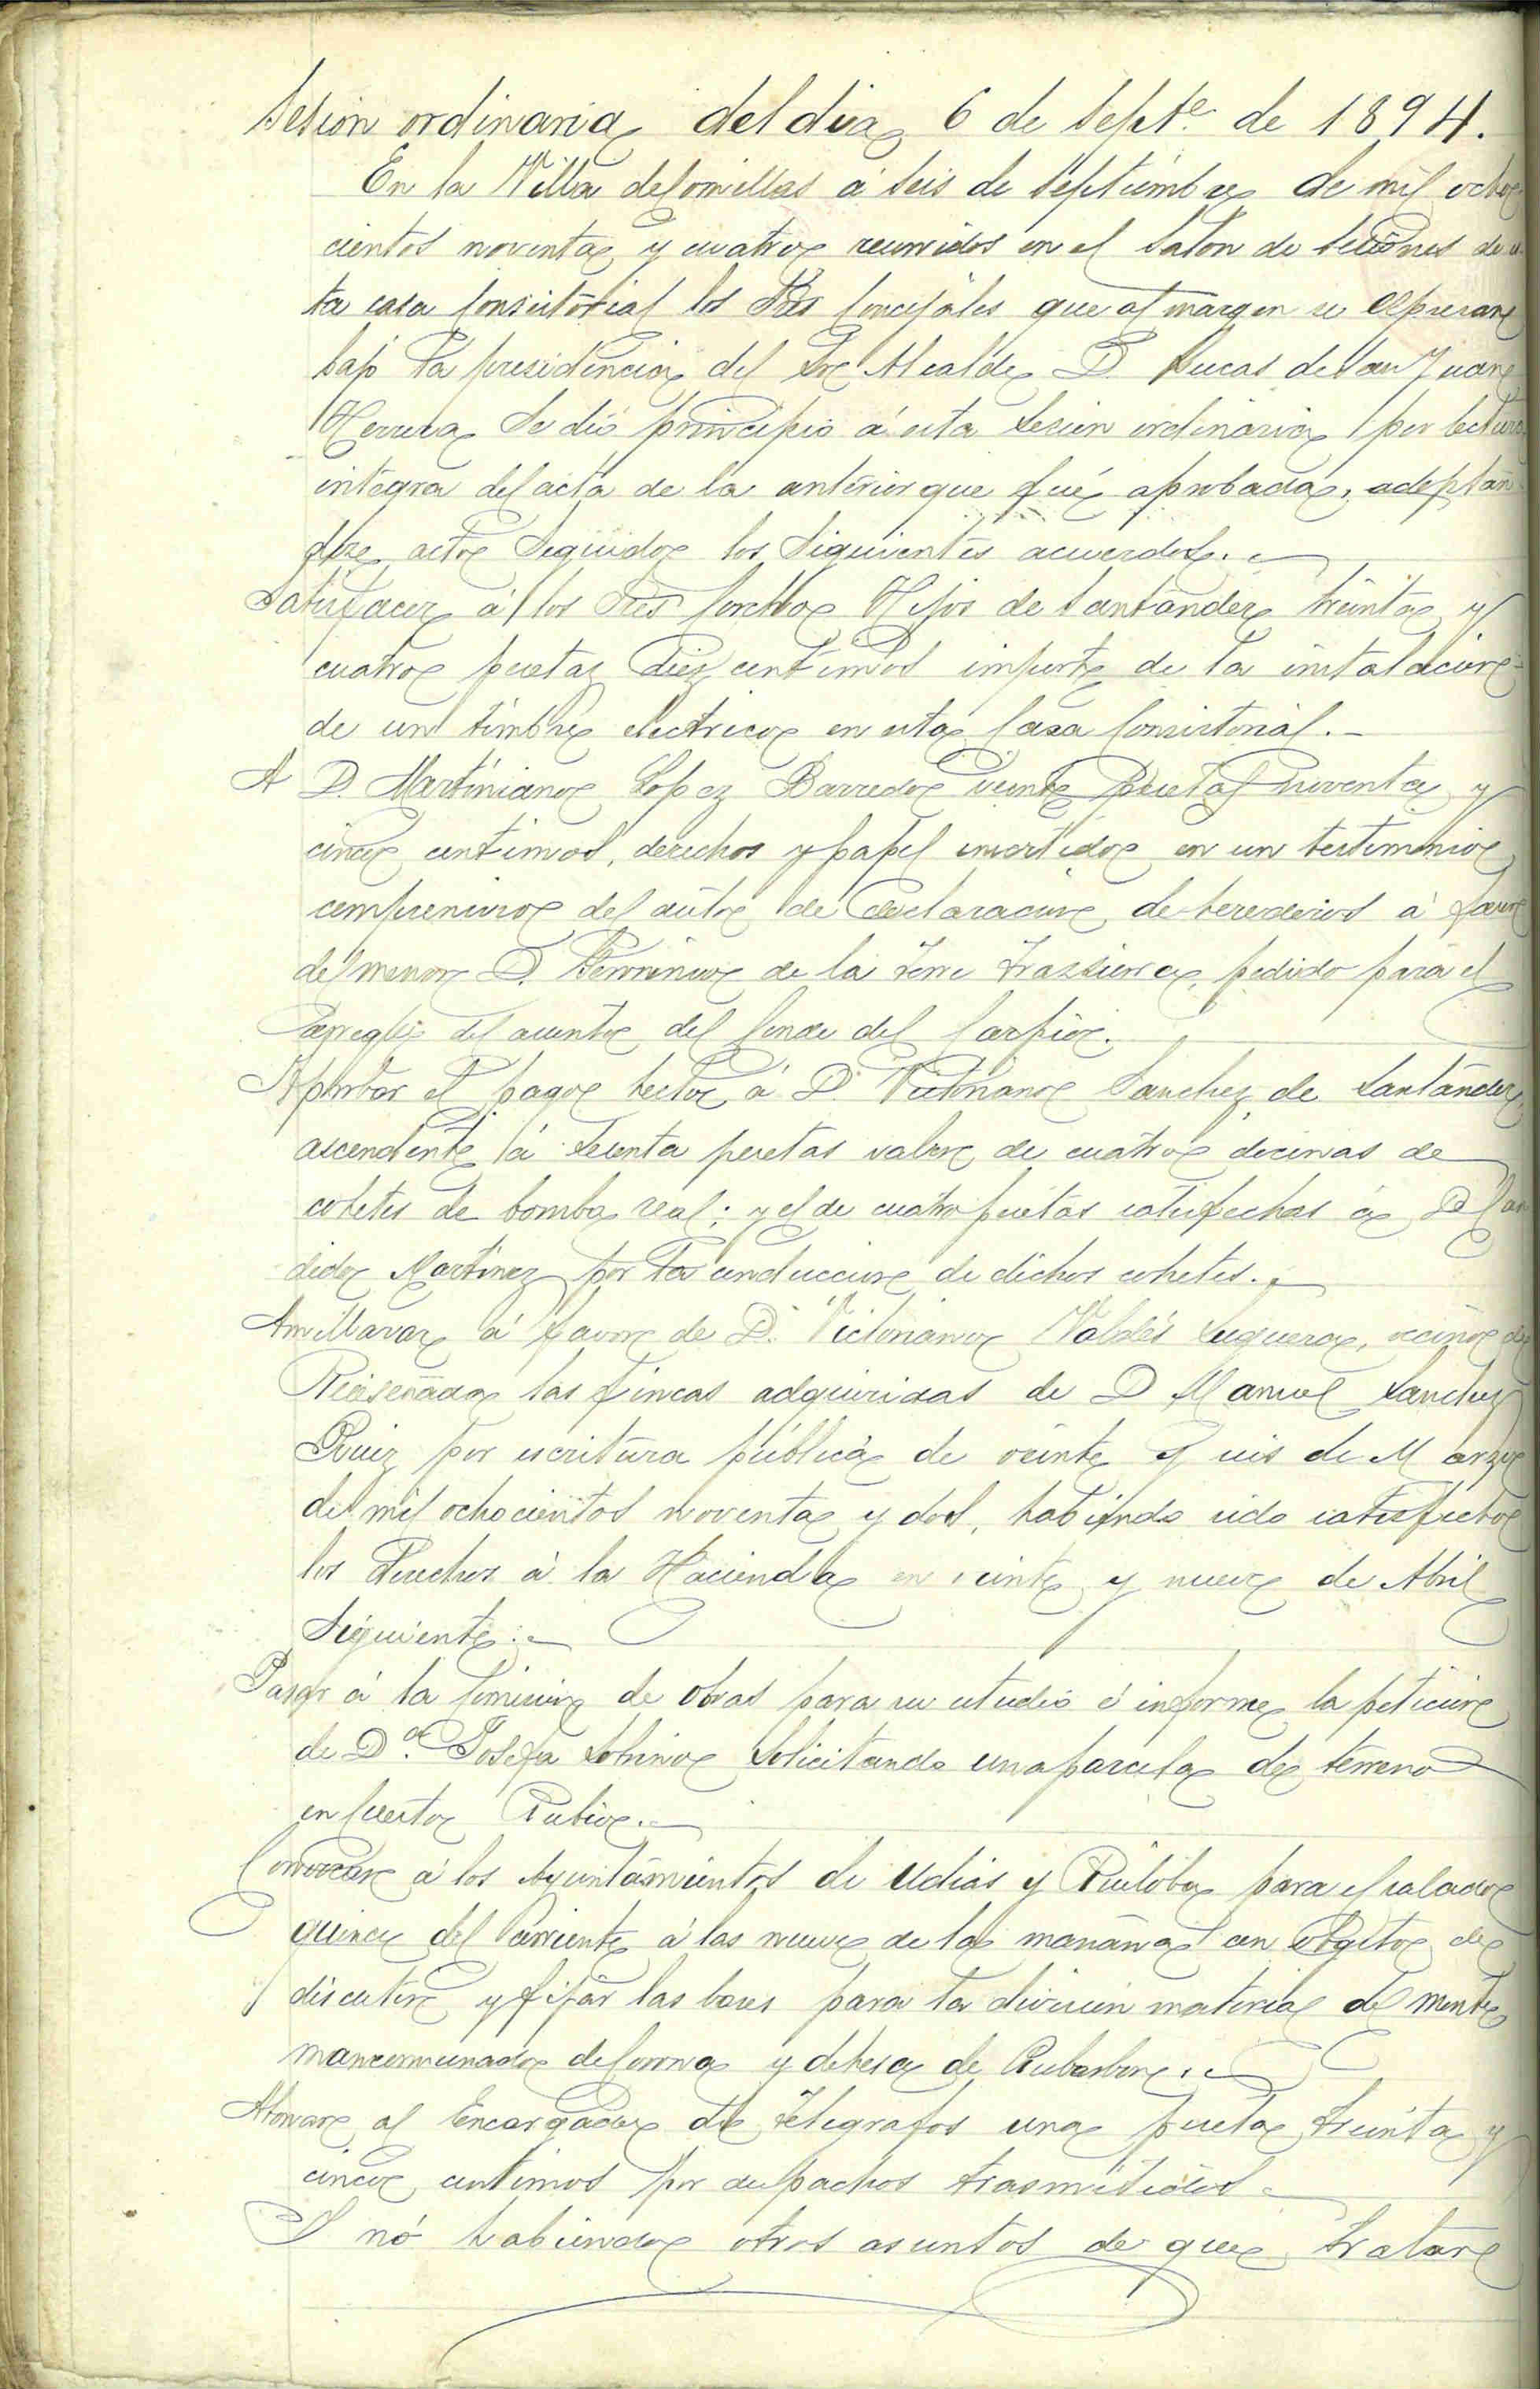 Sesion ordinaria del dia 6 de Sept.e de 1894.
En la Villa de Comillas á seis de Septiembre de mil ocho
cientos noventa y cuatro reunidos en el Salon de Sesiones de es
ta casa Consistorial los Sres Concejales que al margen se espresan
bajo la presidencia del Sr Alcalde D. Lucas de San Juan
Herrera Se dió principio á esta Sesion ordinaria por lectura
integra del acta de la anterior que fué aprobada, adoptan
dose acto Seguido los Siguientes acuerdos.
Satisfacer á los Sres Corcho Hijos de Santander treinta y
cuatro pesetas diez centimos importe de la instalacion
de un timbre electrico en esta Casa Consistorial.
A D. Martiniano Lopez Barredo veinte pesetas noventa y
cinco centimos, derechos y papel invertido en un testimonio
comprensivo del auto de declaracion de herederos á favor
del menor D. de la Torre Trassierra, pedido para el
arreglo del asunto del Conde del Carpio.
Aprobar el pago hecho á D. Victoriano Sanchez de Santander
ascendente á Sesenta pesetas valor de cuatro docenas de
cohetes de bomba real; y el de cuatro pesetas satisfechas á D Can
dido Martinez por la conduccion de dichos cohetes.
Amillarar á favor de D. Victoriano Valdés vecino de
Ruiseñada las fincas adquiridas de D Manuel Sanchez
Ruiz por escritura pública de veinte y seis de Marzo
de mil ochocientos noventa y dos, habiendo sido satisfechos
los derechos á la Hacienda en veinte y nueve de Abril
Siguiente.
Pasar á la Comision de obras para su estudio é informe la peticion
de D.a Josefa Sobrino Solicitando una parcela de terreno
en Cueto Rubio.
Convocar á los Ayuntamientos de Udias y Ruiloba para el sabado
quince del Corriente á las nueve de la mañana con objeto de
discutir y fijar las bases para la division material del monte
mancomunado de Corona y dehesa de Rubarbon.
Abonar al Encargado de Telegrafos una peseta treinta y
cinco centimos por despachos trasmitidos.
Y nó habiendo otros asuntos de que tratar